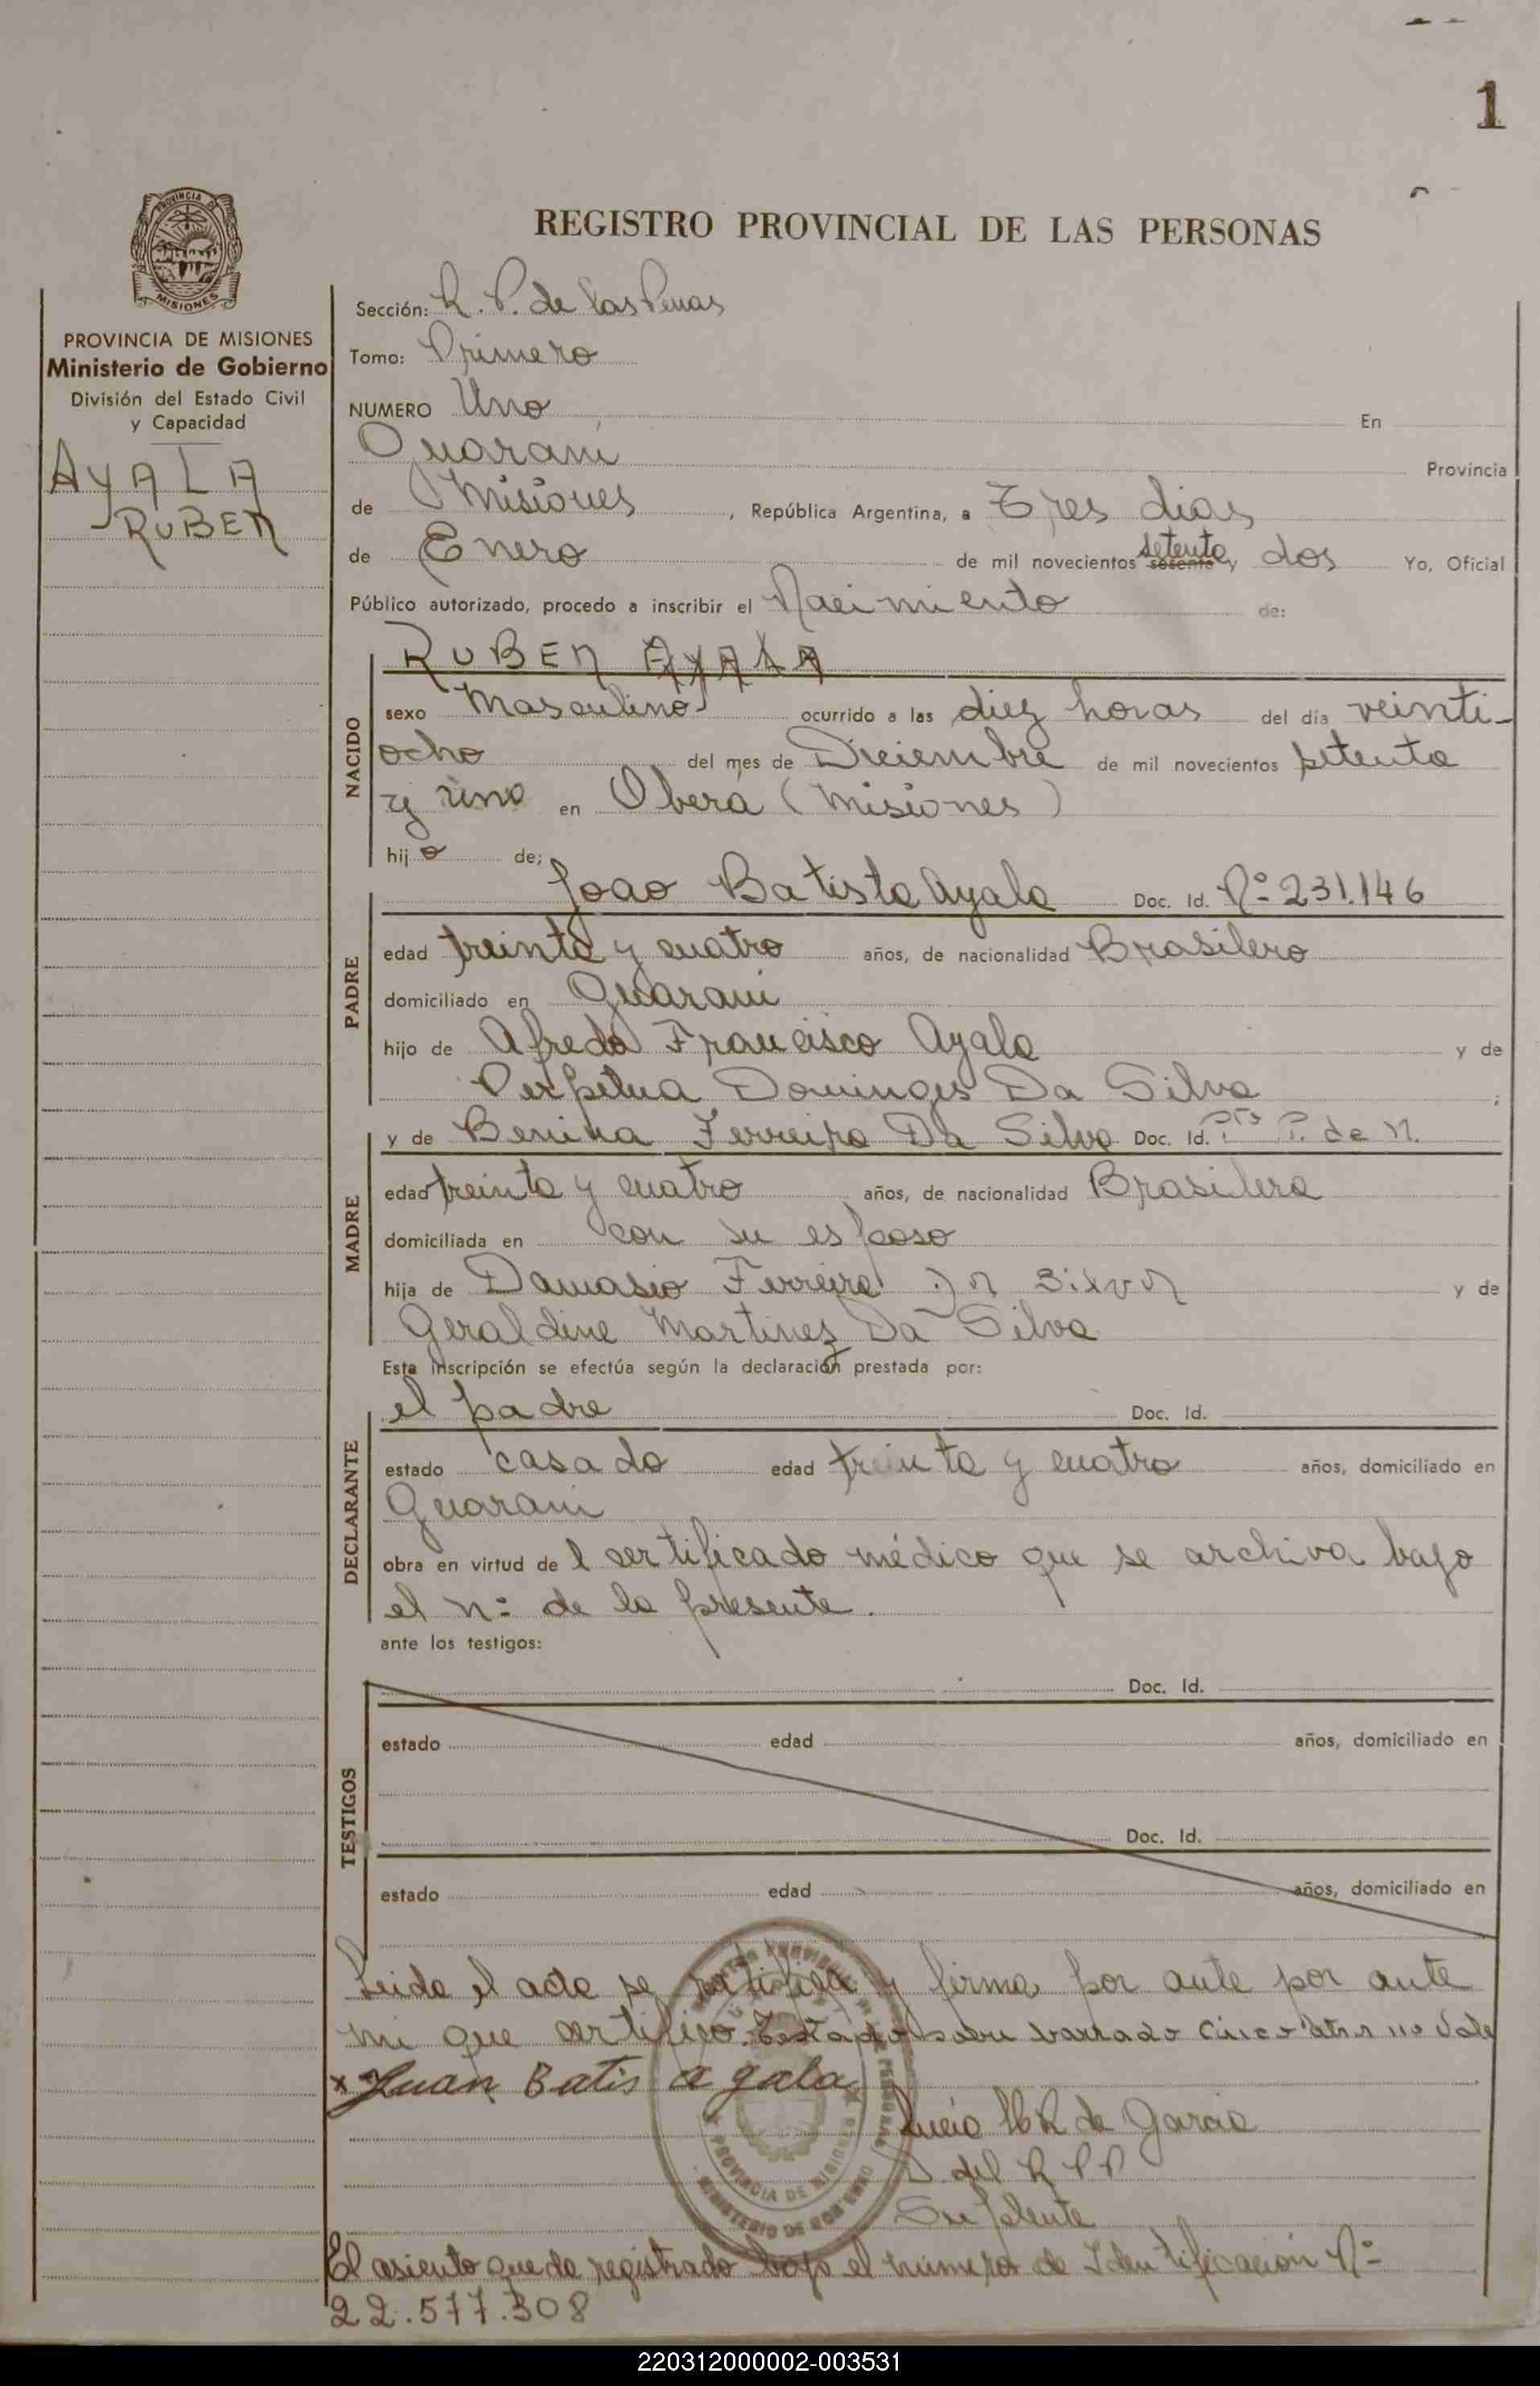 1
REGISTRO PROVINCIAL DE LAS PERSONAS
PROVINCIA DE MISIONES
Ministerio de Gobierno
División del Estado Civil
y Capacidad
AYALA
RUBEN
Sección: R. P. de las
Tomo: Primero
NUMERO Uno En
Guarani Provincia
de Misiones, República Argentina, a Tres dias
de Enero de mil novecientos setenta y dos Yo, Oficial
Público autorizado, procedo a inscribir el Nacimiento de:
RUBEN AYALA
NACIDO
sexo Masculino ocurrido a las diez horas del día veinti-
ocho del mes de Diciembre de mil novecientos setenta
y uno en Obera (Misiones)
hijo de;
PADRE
Joao Batista Ayala Doc. Id. Nº 231.146
edad treinta y cuatro años, de nacionalidad Brasilero
domiciliado en Guarani
hijo de Afredo Francisco Ayala y de
Perpetua Domingos Da Silva ;
MADRE
y de Benina Ferreira Da Silva Doc. Id. de N.
edad treinta y cuatro años, de nacionalidad Brasilera
domiciliada en con su esposo
hija de Damasio Ferreira DA SILVA y de
Geraldine Martinez Da Silva
Esta inscripción se efectúa según la declaración prestada por:
DECLARANTE
el padre Doc. Id.
estado casado edad treinta y cuatro años, domiciliado en
Guarani
obra en virtud de l certificado médico que se archiva bajo
el nº de la presente.
ante los testigos:
TESTIGOS
Doc. Id.
estado edad años, domiciliado en
Doc. Id.
estado edad años, domiciliado en
Leida el acta se ratifica y firma por ante por ante
mi que certifico. Testado barrado cinco no Vale
x Juan Batis a yala
de Garcia
del R P P
Suplente
El asiento queda registrado bajo el número de Identificación Nº
22.577.308
PROVINCIA DE MISIONES
MINISTERIO DE GOBIERNO
220312000002-003531